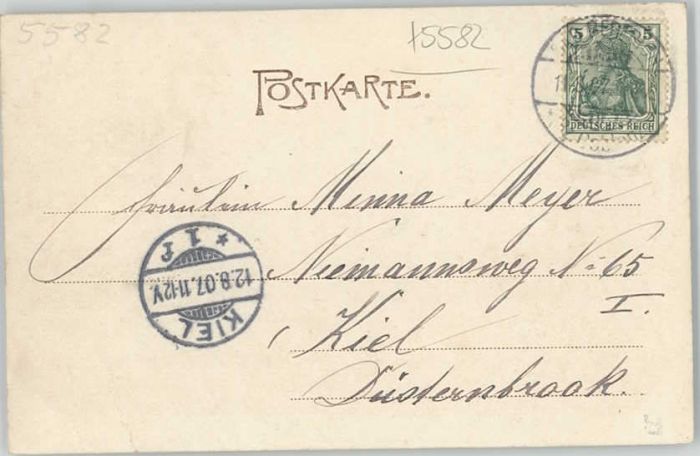 5582
15582
5 5
DEUTSCHES REICH
POSTKARTE.
Fräulein Minna Meyer
Niemannsweg No 65
I.
Kiel
Düsternbrook.
KIEL
12.8.07.11-12V.
* 1 f